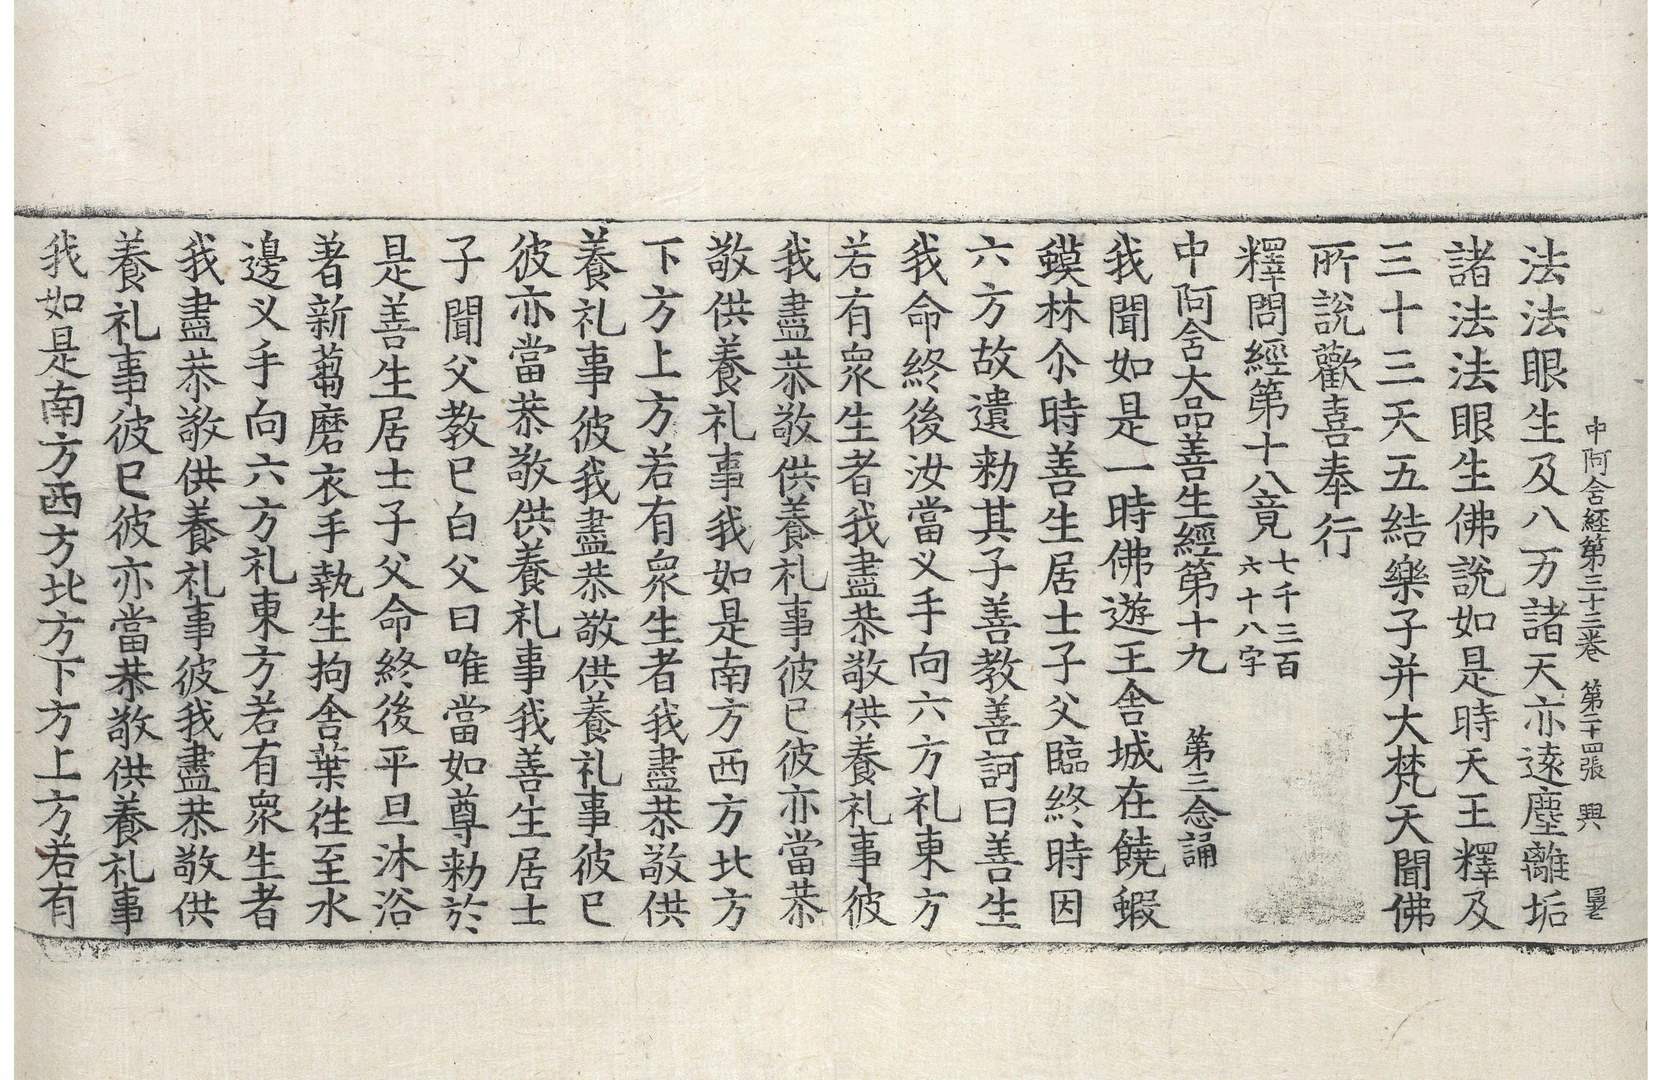 中阿含経第三十三卷 第二十四張 興
法法眼生及八万諸天亦遠塵離垢
諸法法眼生佛說如是時天王釋及
三十三天五結樂子并大梵天聞佛
所說歡喜奉行
釋問經第十八竟 七千三百六十八字
中阿含大品善生經第十九 第三念誦
我聞如是一時佛遊王舍城在饒蝦
蟆林尒時善生居士子父臨終時因
六方故遺勑其子善教善訶曰善生
我命終後汝當叉手向六方礼東方
若有衆生者我盡恭敬供養礼事彼
我盡恭敬供養礼事彼已彼亦當恭
敬供養礼事我如是南方西方北方
下方上方若有衆生者我盡恭敬供
養礼事彼我盡恭敬供養礼事彼已
彼亦當恭敬供養礼事我善生居士
子聞父教已白父曰唯當如尊勑於
是善生居士子父命終後平旦沐浴
著新蒭磨衣手執生拘舍葉往至水
邊叉手向六方礼東方若有衆生者
我盡恭敬供養礼事彼我盡恭敬供
養礼事彼已彼亦當恭敬供養礼事
我如是南方西方北方下方上方若有